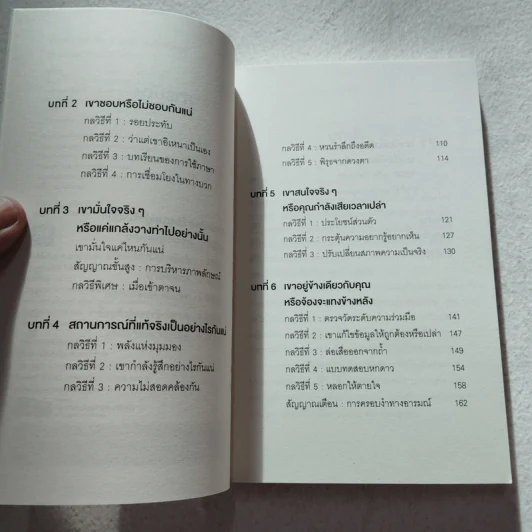 บทที่ 2 เขาชอบหรือไม่ชอบกันแน่
กลวิธีที่ 1 : รอยประทับ
กลวิธีที่ 2 : ว่าแต่เขาอิเหนาเป็นเอง
กลวิธีที่ 3 : บทเรียนของการใช้ภาษา
กลวิธีที่ 4 : การเชื่อมโยงในทางบวก
บทที่ 3 เขามั่นใจจริง ๆ
หรือแค่แกล้งวางท่าไปอย่างนั้น
เขามั่นใจแค่ไหนกันแน่
สัญญาณขั้นสูง : การบริหารภาพลักษณ์
กลวิธีพิเศษ : เมื่อเข้าตาจน
บทที่ 4 สถานการณ์ที่แท้จริงเป็นอย่างไรกันแน่
กลวิธีที่ 1 : พลังแห่งมุมมอง
กลวิธีที่ 2 : เขากำลังรู้สึกอย่างไรกันแน่
กลวิธีที่ 3 : ความไม่สอดคล้องกัน
กลวิธีที่ 4 : หวนรำลึกถึงอดีต 110
กลวิธีที่ 5 : พิรุธจากดวงตา 114
บทที่ 5 เขาสนใจจริง ๆ
หรือคุณกำลังเสียเวลาเปล่า
กลวิธีที่ 1 : ประโยชน์ส่วนตัว 121
กลวิธีที่ 2 : กระตุ้นความอยากรู้อยากเห็น 127
กลวิธีที่ 3 : ปรับเปลี่ยนสภาพความเป็นจริง 130
บทที่ 6 เขาอยู่ข้างเดียวกับคุณ
หรือจ้องจะแทงข้างหลัง
กลวิธีที่ 1 : ตรวจวัดระดับความร่วมมือ 141
กลวิธีที่ 2 : เขาแก้ไขข้อมูลให้ถูกต้องหรือเปล่า 147
กลวิธีที่ 3 : ล่อเสือออกจากถ้ำ 149
กลวิธีที่ 4 : แบบทดสอบหกดาว 154
กลวิธีที่ 5 : หลอกให้ตายใจ 158
สัญญาณเตือน : การครอบงำทางอารมณ์ 162